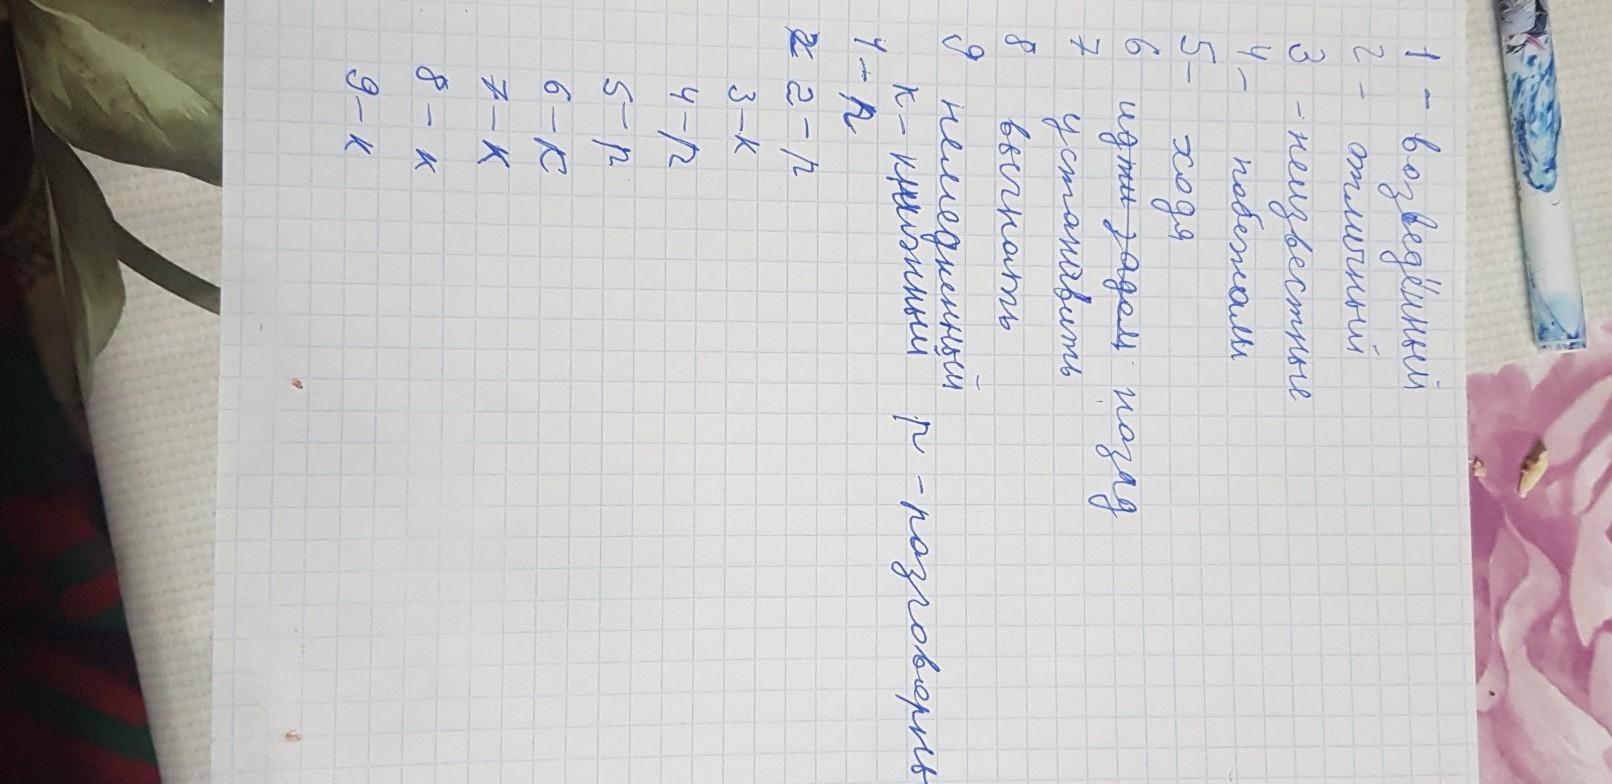 1 - возведённый
2 - отличный
3 - неизвестные
4 - побежали
5 - ходя
6 идти задом назад
7 установить
8 выгнать
9 немедленный
к - книжный р - разговорны
1 - р
2 - р
3 - к
4 - р
5 - р
6 - к
7 - к
8 - к
9 - к